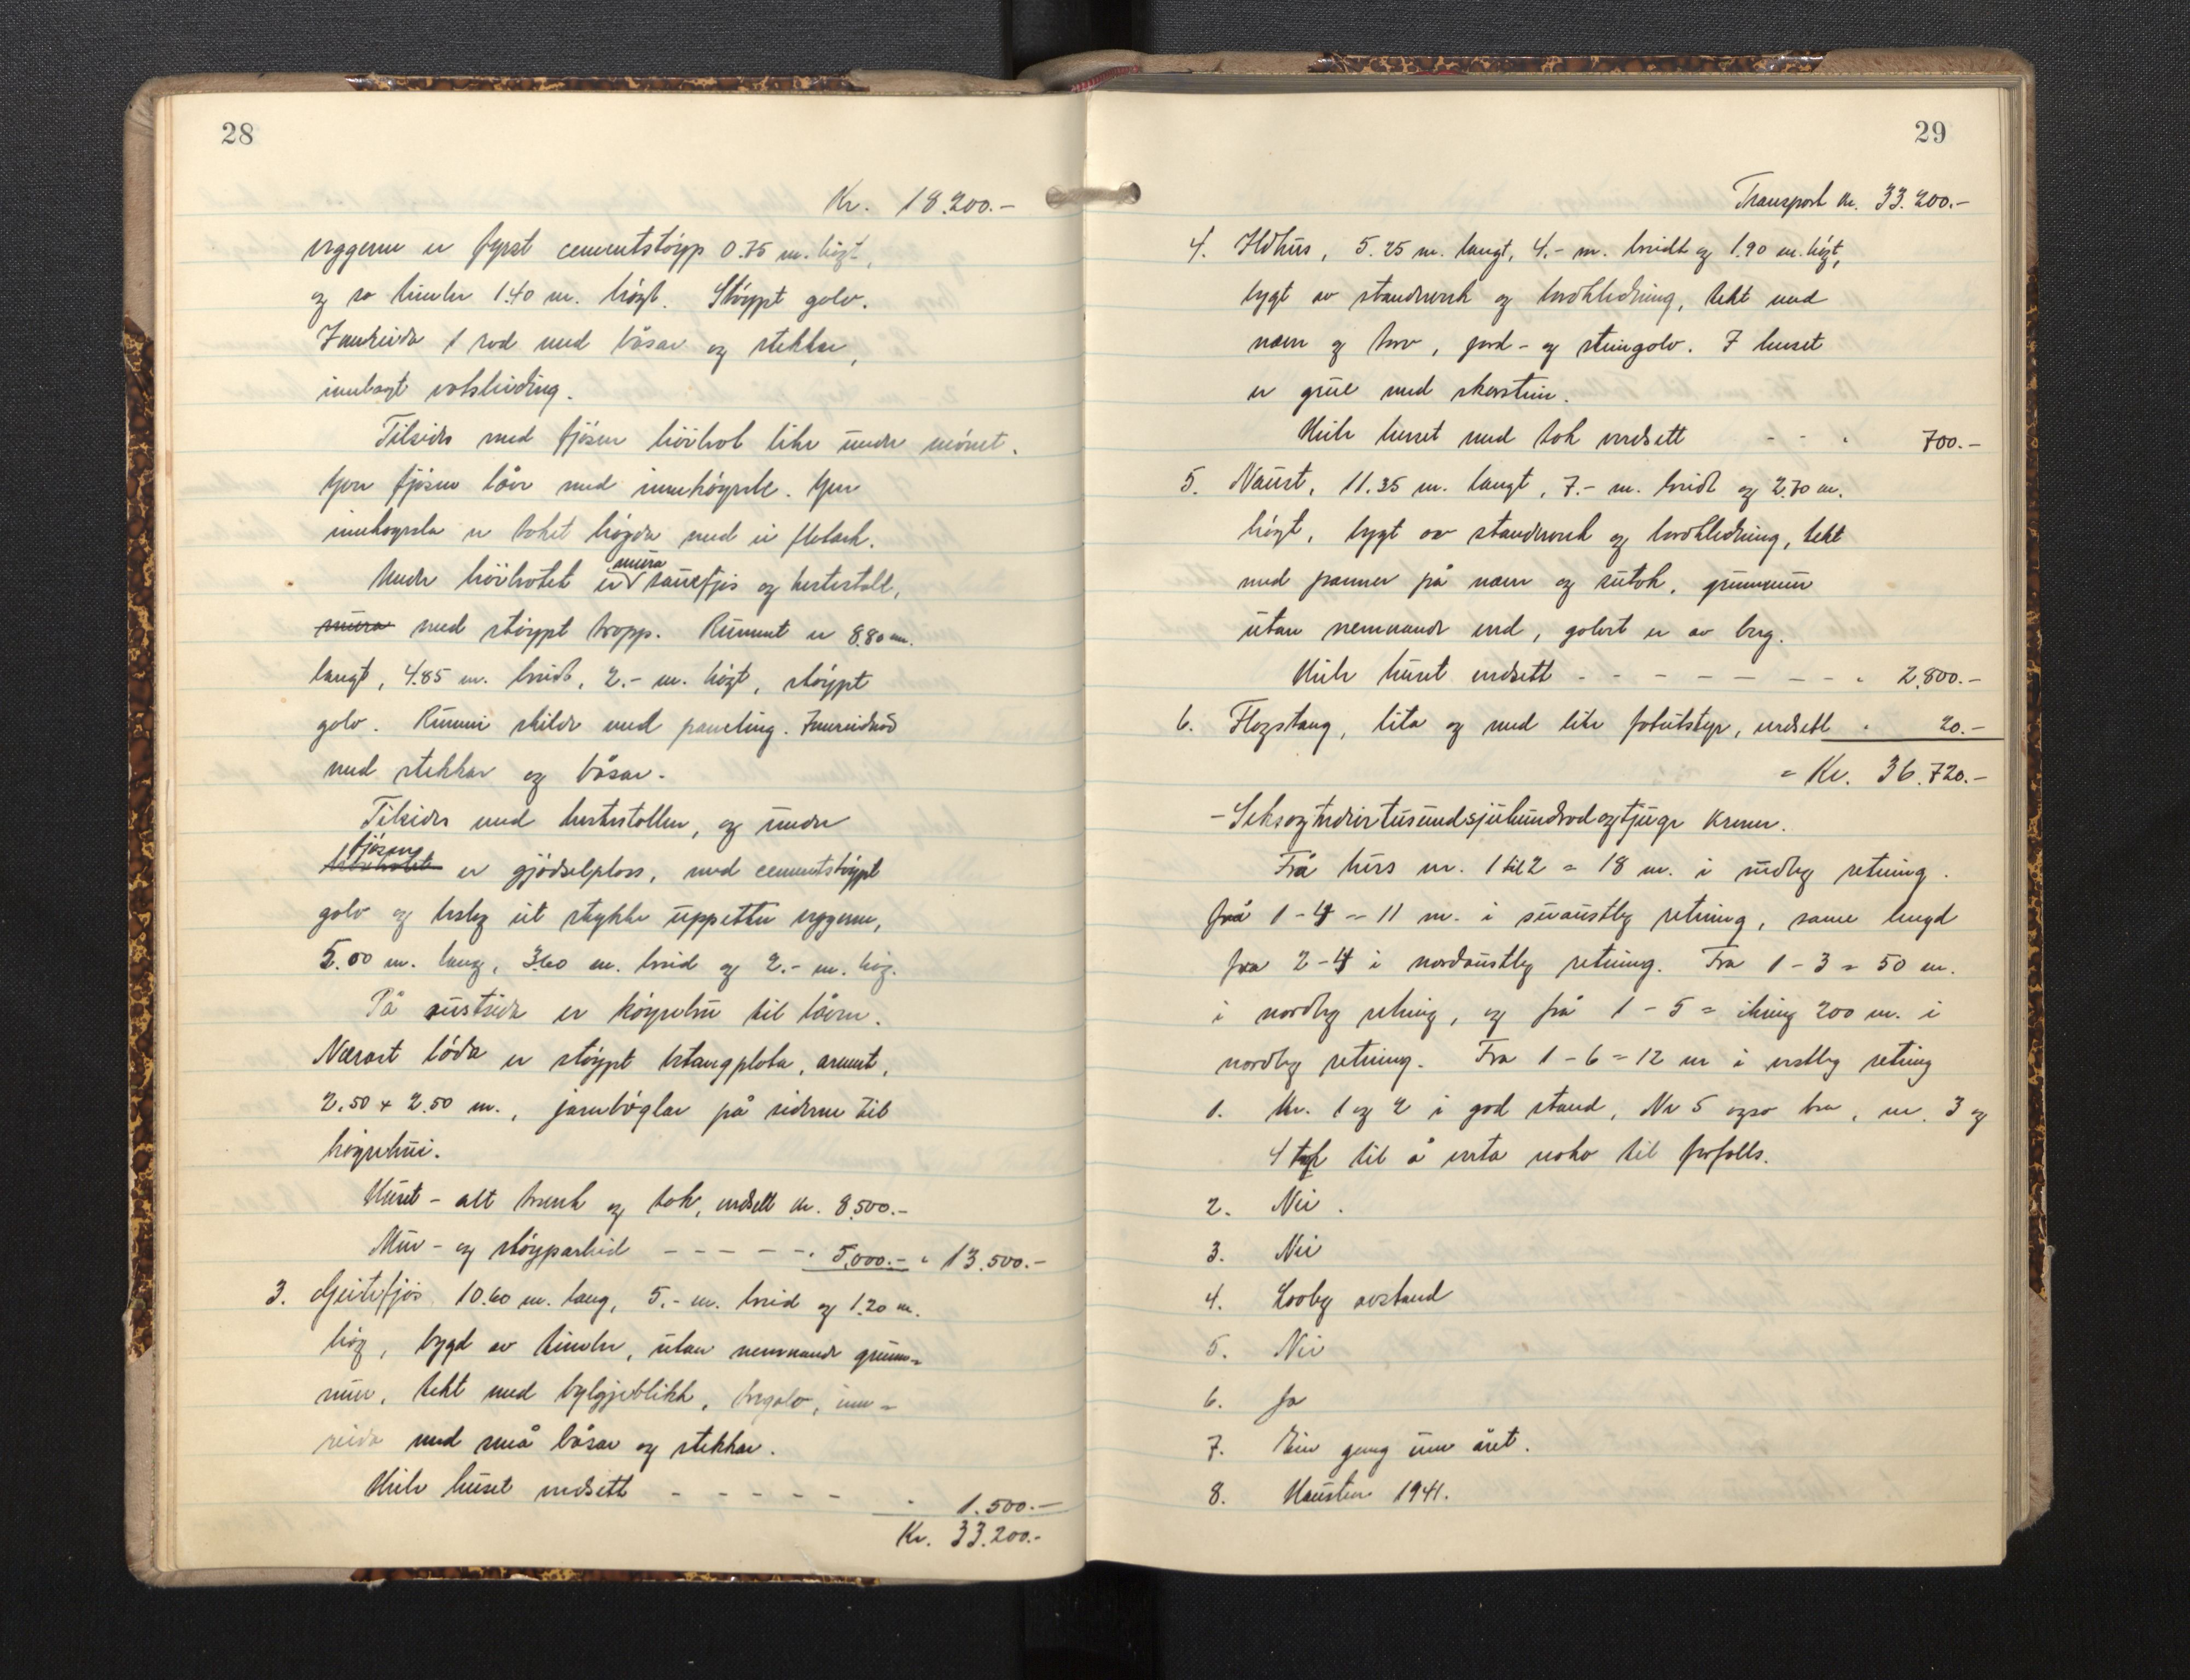 28
Kr. 18.200.-
veggene er fyrst cementstöypp 0.75 m. högt,
og so timber 1.40 m. högt. Stöypt golv.
Innreida 1 rad med båsar og stekkar,
innlagt vatsleiding.
Tilsides med fjösen höihol like under mönet.
Yver fjösen låve med innehöyrsle. Yver
innehöyrsla er taket högda med ei flotark.
Under höiholet er mura sauefjös og hestestall,
mura med stöypt tropp. Rummet er 8.80 m.
langt, 4.85 m. breidt, 2.- m. högt, stöypt
golv. Rummi skilde med paneling. Innreidnad
med stekkar og båsar.
Tilsides med hestestallen, og under
höiholet fjösen er gjödselplass, med cementstöypt
golv og beslag eit stykke uppetter veggene,
5.00 m. lang, 3.60 m. breid og 2.- m. hög.
På austsida er köyrebru til låven.
Nærast löda er stöypt betongplata, armert,
2.50 x 2.50 m., jarnböglar på sidene til
köyrebrui.
Huset - alt treverk og tak, verdsett kr. 8.500.-
Mur- og stöyparbeid - - - - - " 5.000.- " 13.500.-
3. Geitefjös 10.60 m. lang, 5.- m. breid og 1.20 m.
hög, bygd av timber, utan nemnande grunn-
mur, tekt med bylgjeblikk, tregolv, inn-
reida med små båsar og stekkar.
Heile huset verdsett - - - - - " 1.500.-
Kr. 33.200.-
29
Transport kr. 33.200.-
4. Eldhus, 5.25 m. langt, 4.- m. breidt og 1.90 m. högt,
bygt av standverk og bordkledning, tekt med
never og torv, jord- og steingolv. I huset
er grue med skorstein.
Heile huset med tak verdsett - - " 700.-
5. Naust, 11.35 m. langt, 7.- m. breidt og 2.70 m.
högt, bygt av standverk og bordkledning, tekt
med panner på never og sutak, grunnmur
utan nemnande verd, golvet er av berg.
Heile huset verdsett - - - - - - - " 2.800.-
6. Flogstang, lita og med lite fotutstyr, verdsett " 20.-
= Kr. 36.720.-
- Seksogtredivetusundsjuhundradogtjuge kroner.
Frå hus nr. 1 til 2 = 18 m. i nordleg retning.
frå 1 - 4 = 11 m. i suaustleg retning, same lengd
fra 2 - 4 i nordaustleg retning. Fra 1 - 3 = 50 m.
i nordleg retning, og frå 1 - 5 = ikring 200 m. i
nordleg retning. Fra 1 - 6 = 12 m i vestleg retning
1. Nr. 1 og 2 i god stand, Nr 5 ogso bra, nr. 3 og
4 tek til å verta noko til forfalls.
2. Nei.
3. Nei
4. Lovleg avstand
5. Nei
6. Ja
7. Ein gong um året.
8. Hausten 1941.